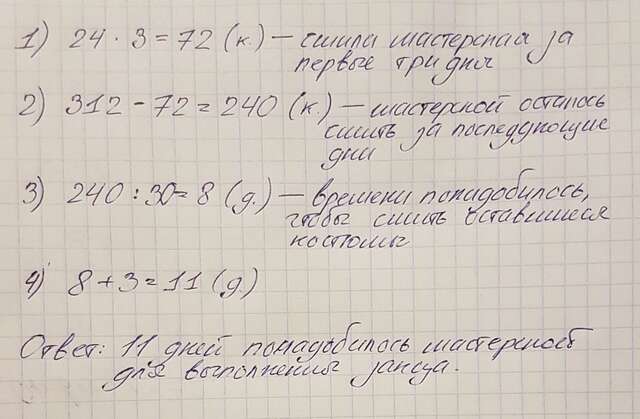 1) 24 · 3 = 72 (к.) — сшила мастерская за
первые три дня
2) 312 - 72 = 240 (к.) — мастерской осталось
сшить за последующие
дни
3) 240 : 30 = 8 (д.) — времени понадобилось,
чтобы сшить оставшиеся
костюмы
4) 8 + 3 = 11 (д)
Ответ: 11 дней понадобилось мастерской
для выполнения заказа.